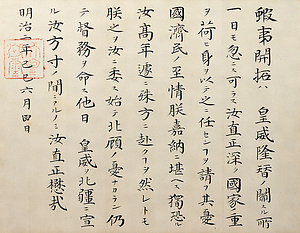 蝦夷開拓ハ　皇威隆替ノ關スル所
一日モ忽ニス可ラス汝直正深ク國家ノ重
ヲ荷ヒ身ヲ以テ之ニ任センヿヲ請フ其憂
國濟民ノ至情朕嘉納ニ堪ヘス獨恐ル
汝高年遽ニ殊方ニ赴クヿヲ然レトモ
朕之ヲ汝ニ委ス始テ北顧ノ憂ナカラン仍
テ督務ヲ命ス他日　皇威ヲ北疆ニ宣ル
汝方寸ノ間ニアルノミ汝直正懋哉
明治二年己巳六月四日